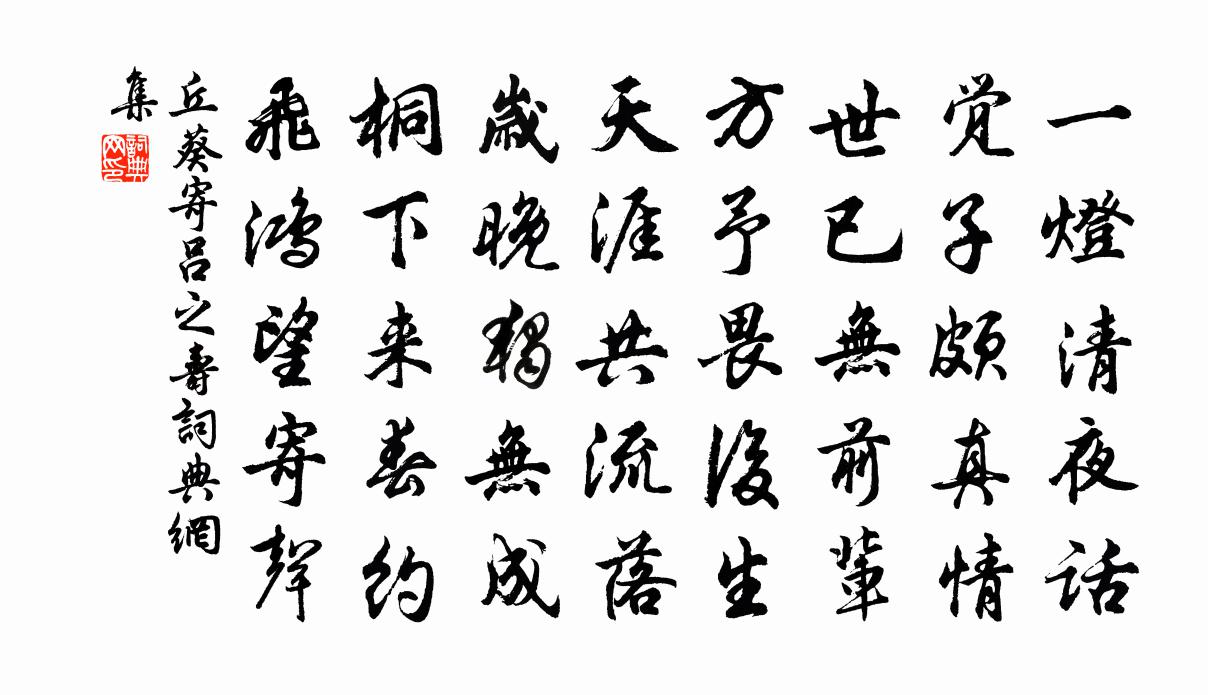 一燈清夜話
覚子頗真情
世已無前輩
方予畏後生
天涯共流落
歳晚獨無成
桐下来春約
飛鴻望寄聲
丘葵寄吕之壽詞典網
集
詞典
网印